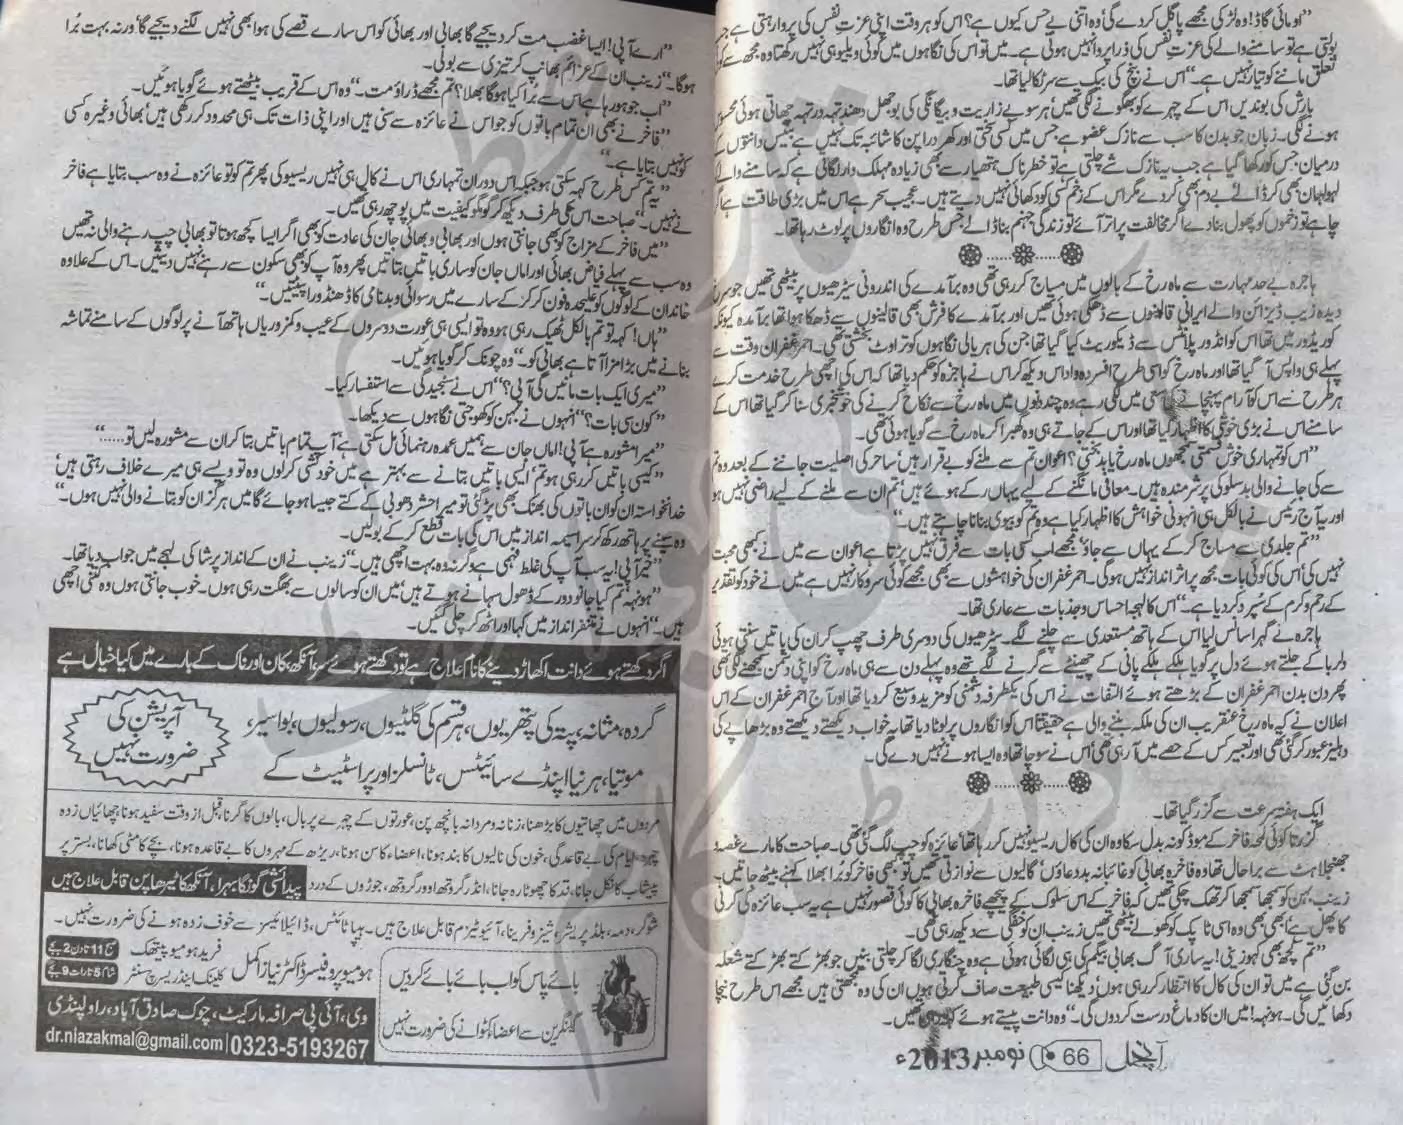 ”او مائی گاڈ! وہ لڑکی مجھے پاگل کردے گی‘ وہ اتنی بے حس کیوں ہے؟ اس کو ہر وقت اپنی عزت نفس کی پروا رہتی ہے جب
بولتی ہے تو سامنے والے کی عزت نفس کی ذرا پروا نہیں ہوتی ہے۔ میں تو اس کی نگاہوں میں کوئی ویلیو ہی نہیں رکھتا وہ مجھ سے کوئی
تعلق ماننے کو تیار نہیں ہے۔“ اس نے بینچ کی بیک سے سر ٹکا لیا تھا۔
بارش کی بوندیں اس کے چہرے کو بھگونے لگی تھیں‘ ہر سو بے زاریت و بیگانگی کی بوجھل دھند تہہ در تہہ چھاتی ہوئی محسوس
ہونے لگی۔ زبان جو بدن کا سب سے نازک عضو ہے جس میں کسی سختی اور کھردرا پن کا شائبہ تک نہیں ہے بتیس دانتوں کے
درمیان جس کو رکھا گیا ہے جب یہ نازک شے چلتی ہے تو خطرناک ہتھیار سے بھی زیادہ مہلک وار لگاتی ہے کہ سامنے والے
لہولہان بھی کر ڈالے بے دم بھی کردے مگر اس کے زخم کسی کو دکھائی نہیں دیتے ہیں۔ عجیب سحر ہے اس میں بڑی طاقت ہے اگر
چاہے تو زخموں کو پھول بنا دے اگر مخالفت پر اتر آئے تو زندگی جہنم بنا ڈالے جس طرح وہ انگاروں پر لوٹ رہا تھا۔
ہاجرہ بے حد مہارت سے ماہ رخ کے بالوں میں مساج کررہی تھی وہ برآمدے کی اندرونی سیڑھیوں پر بیٹھی تھیں جو سرخ
دیدہ زیب ڈیزائن والے ایرانی قالینوں سے ڈھکی ہوئی تھیں اور برآمدے کا فرش بھی قالینوں سے ڈھکا ہوا تھا برآمدہ کیونکہ
کوریڈور میں تھا اس کو انڈور پلانٹس سے ڈیکوریٹ کیا گیا تھا جن کی ہریالی نگاہوں کو تراوٹ بخشتی تھی۔ احمر غفران وقت سے
پہلے ہی واپس آگیا تھا اور ماہ رخ کو اسی طرح افسردہ و اداس دیکھ کر اس نے ہاجرہ کو حکم دیا تھا کہ اس کی اچھی طرح خدمت کرے
ہر طرح سے اس کو آرام پہنچانے کی سعی میں لگی رہے وہ چند دنوں میں ماہ رخ سے نکاح کرنے کی خوشخبری سنا کر گیا تھا اس کے
سامنے اس نے بڑی خوشی کا اظہار کیا تھا اور اس کے جاتے ہی وہ گھبرا کر ماہ رخ سے گویا ہوئی تھی۔
”اس کو تمہاری خوش قسمتی سمجھوں ماہ رخ یا بدبختی؟ اعوان تم سے ملنے کو بے قرار ہیں‘ ساحر کی اصلیت جاننے کے بعد وہ تم
سے کی جانے والی بدسلوکی پر شرمندہ ہیں۔ معافی مانگنے کے لیے یہاں رکے ہوئے ہیں‘ تم ان سے ملنے کے لیے راضی نہیں ہو
اور یہ آج رئیس نے بالکل ہی انہونی خواہش کا اظہار کیا ہے وہ تم کو بیوی بنانا چاہتے ہیں۔“
”تم جلدی سے مساج کرکے یہاں سے جاؤ‘ مجھے اب کسی بات سے فرق نہیں پڑتا ہے اعوان سے میں نے کبھی محبت
نہیں کی‘ اس کی کوئی بات مجھ پر اثر انداز نہیں ہوگی۔ احمر غفران کی خواہشوں سے بھی مجھے کوئی سروکار نہیں ہے میں نے خود کو تقدیر
کے رحم و کرم کے سپرد کردیا ہے۔“ اس کا لہجہ احساس و جذبات سے عاری تھا۔
ہاجرہ نے گہرا سانس لیا اس کے ہاتھ مستعدی سے چلنے لگے۔ سیڑھیوں کی دوسری طرف چھپ کر ان کی باتیں سنتی ہوئی
دلربا کے جلتے ہوئے دل پر گویا ہلکے ہلکے پانی کے چھینٹے سے گرنے لگے تھے وہ پہلے دن سے ہی ماہ رخ کو اپنی دشمن سمجھنے لگی تھی
پھر دن بدن احمر غفران کے بڑھتے ہوئے التفات نے اس کی یکطرفہ دشمنی کو مزید وسیع کردیا تھا اور آج احمر غفران کے اس
اعلان نے کہ ماہ رخ عنقریب ان کی ملکہ بننے والی ہے حقیقتاً اس کو انگاروں پر لوٹا دیا تھا یہ خواب دیکھتے دیکھتے وہ بڑھاپے کی
دہلیز عبور کر گئی تھی اور تعبیر کس کے حصے میں آرہی تھی‘ اس نے سوچا تھا وہ ایسا ہونے نہیں دے گی۔
ایک ہفتہ سرعت سے گزر گیا تھا۔
گزرتا کوئی لمحہ فاخر کے موڈ کو نہ بدل سکا وہ ان کی کال ریسیو نہیں کررہا تھا‘ عائزہ کو چپ لگ گئی تھی۔ صباحت کا مارے غصہ و
جھنجلاہٹ سے برا حال تھا وہ فاخرہ بھابی کو غائبانہ بددعاؤں‘ گالیوں سے نوازتی تھیں تو کبھی فاخر کو برا بھلا کہنے بیٹھ جاتیں۔
زینب بہن کو سمجھا سمجھا کر تھک چکی تھیں کہ فاخر کے اس سلوک کے پیچھے فاخرہ بھابی کا کوئی قصور نہیں ہے یہ سب عائزہ کی کرنی
کا پھل ہے‘ ابھی بھی وہ اسی ٹاپک کو کھولے بیٹھی تھیں‘ زینب ان کو خفگی سے دیکھ رہی تھی۔
”تم کچھ بھی کہو زینی! یہ ساری آگ بھابی بیگم کی ہی لگائی ہوئی ہے وہ چنگاری لگا کر چلتی بنیں جو بھڑکتے بھڑکتے شعلہ
بن گئی ہے میں تو ان کی کال کا انتظار کررہی ہوں‘ دیکھنا کیسی طبیعت صاف کرتی ہوں ان کی وہ سمجھتی ہیں مجھے اس طرح نیچا
دکھائیں گی۔ ہونہہ! میں ان کا دماغ درست کردوں گی۔“ وہ دانت پیستے ہوئے کہہ رہی تھیں۔
آنچل 66 نومبر 2013ء
”ارے آپی! ایسا غضب مت کردیجیے گا بھابی اور بھائی کو اس سارے قصے کی ہوا بھی نہیں لگنے دیجیے گا‘ ورنہ بہت بُرا
ہوگا۔“ زینب ان کے عزائم بھانپ کر تیزی سے بولی۔
”اب جو ہورہا ہے اس سے بُرا کیا ہوگا بھلا؟ تم مجھے ڈراؤ مت۔“ وہ اس کے قریب بیٹھتے ہوئے گویا ہوئیں۔
”فاخر نے بھی ان تمام باتوں کو جو اس نے عائزہ سے سنی ہیں اور اپنی ذات تک ہی محدود کر رکھی ہیں‘ بھائی وغیرہ کسی
کو نہیں بتایا ہے۔“
”یہ تم کس طرح کہہ سکتی ہو جبکہ اس دوران تمہاری اس نے کال ہی نہیں ریسیو کی پھر تم کو تو عائزہ نے وہ سب بتایا ہے فاخر
نے نہیں۔“ صباحت اس کی طرف دیکھ کر گومگو کیفیت میں پوچھ رہی تھیں۔
”میں فاخر کے مزاج کو بھی جانتی ہوں اور بھابی و بھائی جان کی عادت کو بھی اگر ایسا کچھ ہوتا تو بھابی چپ رہنے والی نہ تھیں
وہ سب سے پہلے فیاض بھائی اور اماں جان کو ساری باتیں بتاتیں پھر وہ آپ کو بھی سکون سے رہنے نہیں دیتیں۔ اس کے علاوہ
خاندان کے لوگوں کو علیحدہ فون کرکرکے سارے میں رسوائی و بدنامی کا ڈھنڈورا پیٹتیں۔“
”ہاں! کہہ تو تم بالکل ٹھیک رہی ہو وہ تو ایسی ہی عورت دوسروں کے عیب و کمزوریاں ہاتھ آنے پر لوگوں کے سامنے تماشہ
بنانے میں بڑا مزا آتا ہے بھابی کو۔“ وہ چونک کر گویا ہوئیں۔
”میری ایک بات مانیں گی آپی؟“ اس نے سنجیدگی سے استفسار کیا۔
”کون سی بات؟“ انہوں نے بہن کو کھوجتی نگاہوں سے دیکھا۔
”میرا مشورہ ہے آپی! اماں جان سے ہمیں عمدہ رہنمائی مل سکتی ہے آپ تمام باتیں بتا کر ان سے مشورہ لیں تو......“
”کیسی باتیں کررہی ہو تم‘ ایسی باتیں بتانے سے بہتر ہے میں خودکشی کرلوں وہ تو ویسے ہی میرے خلاف رہتی ہیں‘
خدانخواستہ ان کو ان باتوں کی بھنک بھی پڑگئی تو میرا حشر دھوبی کے کتے جیسا ہو جائے گا میں ہرگز ان کو بتانے والی نہیں ہوں۔“
وہ سینے پر ہاتھ رکھ کر سراسیمہ انداز میں اس کی بات قطع کرکے بولیں۔
”خیر آپی! یہ سب آپ کی غلط فہمی ہے وگرنہ وہ بہت اچھی ہیں۔“ زینب نے ان کے انداز پر شاکی لہجے میں جواب دیا تھا۔
”ہونہہ‘ تم کیا جانو دور کے ڈھول سہانے ہوتے ہیں‘ میں ان کو سالوں سے بھگت رہی ہوں۔ خوب جانتی ہوں وہ کتنی اچھی
ہیں۔“ انہوں نے متنفر انداز میں کہا اور اٹھ کر چلی گئیں۔
اگر دکھتے ہوئے دانت اکھاڑ دینے کا نام علاج ہے تو دکھتے ہوئے سر، آنکھ، کان اور ناک کے بارے میں کیا خیال ہے
گردہ، مثانہ، پتہ کی پتھریوں، ہر قسم کی گلٹیوں، رسولیوں، بواسیر،
موتیا، ہرنیا، اپنڈے سائیٹس، ٹانسلز اور پراسٹیٹ کے
آپریشن کی
ضرورت نہیں
مردوں میں چھاتیوں کا بڑھنا، زنانہ و مردانہ بانجھ پن، عورتوں کے چہرے پر بال، بالوں کا گرنا، قبل از وقت سفید ہونا، چھائیاں زدہ
چہرہ، ایام کی بے قاعدگی، خون کی نالیوں کا بند ہونا، اعضاء کا سن ہونا، ریڑھ کے مہروں کا بے قاعدہ ہونا، بچے کا مٹی کھانا، بستر پر
پیشاب کا نکل جانا، قد کا چھوٹا رہ جانا، انڈر گروتھ اور اوور گروتھ، جوڑوں کے درد پیدائشی گونگا بہرا، آنکھ کا ٹیڑھا پن قابل علاج ہیں
شوگر، دمہ، بلڈ پریشر، شیزوفرینا، آٹیوٹیزم قابل علاج ہیں۔ ہیپاٹائٹس، ڈائیلائیسز سے خوف زدہ ہونے کی ضرورت نہیں۔
بائے پاس کو اب بائے بائے کردیں
گینگرین سے اعضاء کٹوانے کی ضرورت نہیں
فرید ہومیوپیتھک
ہومیو پروفیسر ڈاکٹر نیاز اکمل کلینک اینڈ ریسرچ سنٹر
صبح 11 تا دن 2 بجے
شام 5 تا رات 9 بجے
وی، آئی پی صرافہ مارکیٹ، چوک صادق آباد، راولپنڈی
dr.niazakmal@gmail.com 0323-5193267